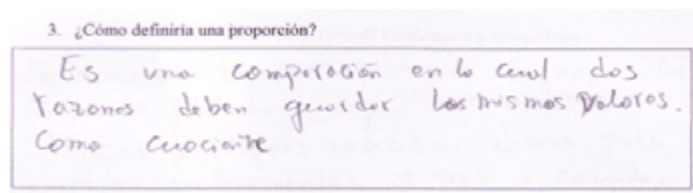 3. ¿Cómo definiría una proporción?
Es una comparación en la cual dos
razones deben guardar los mismos valores.
Como cuociente